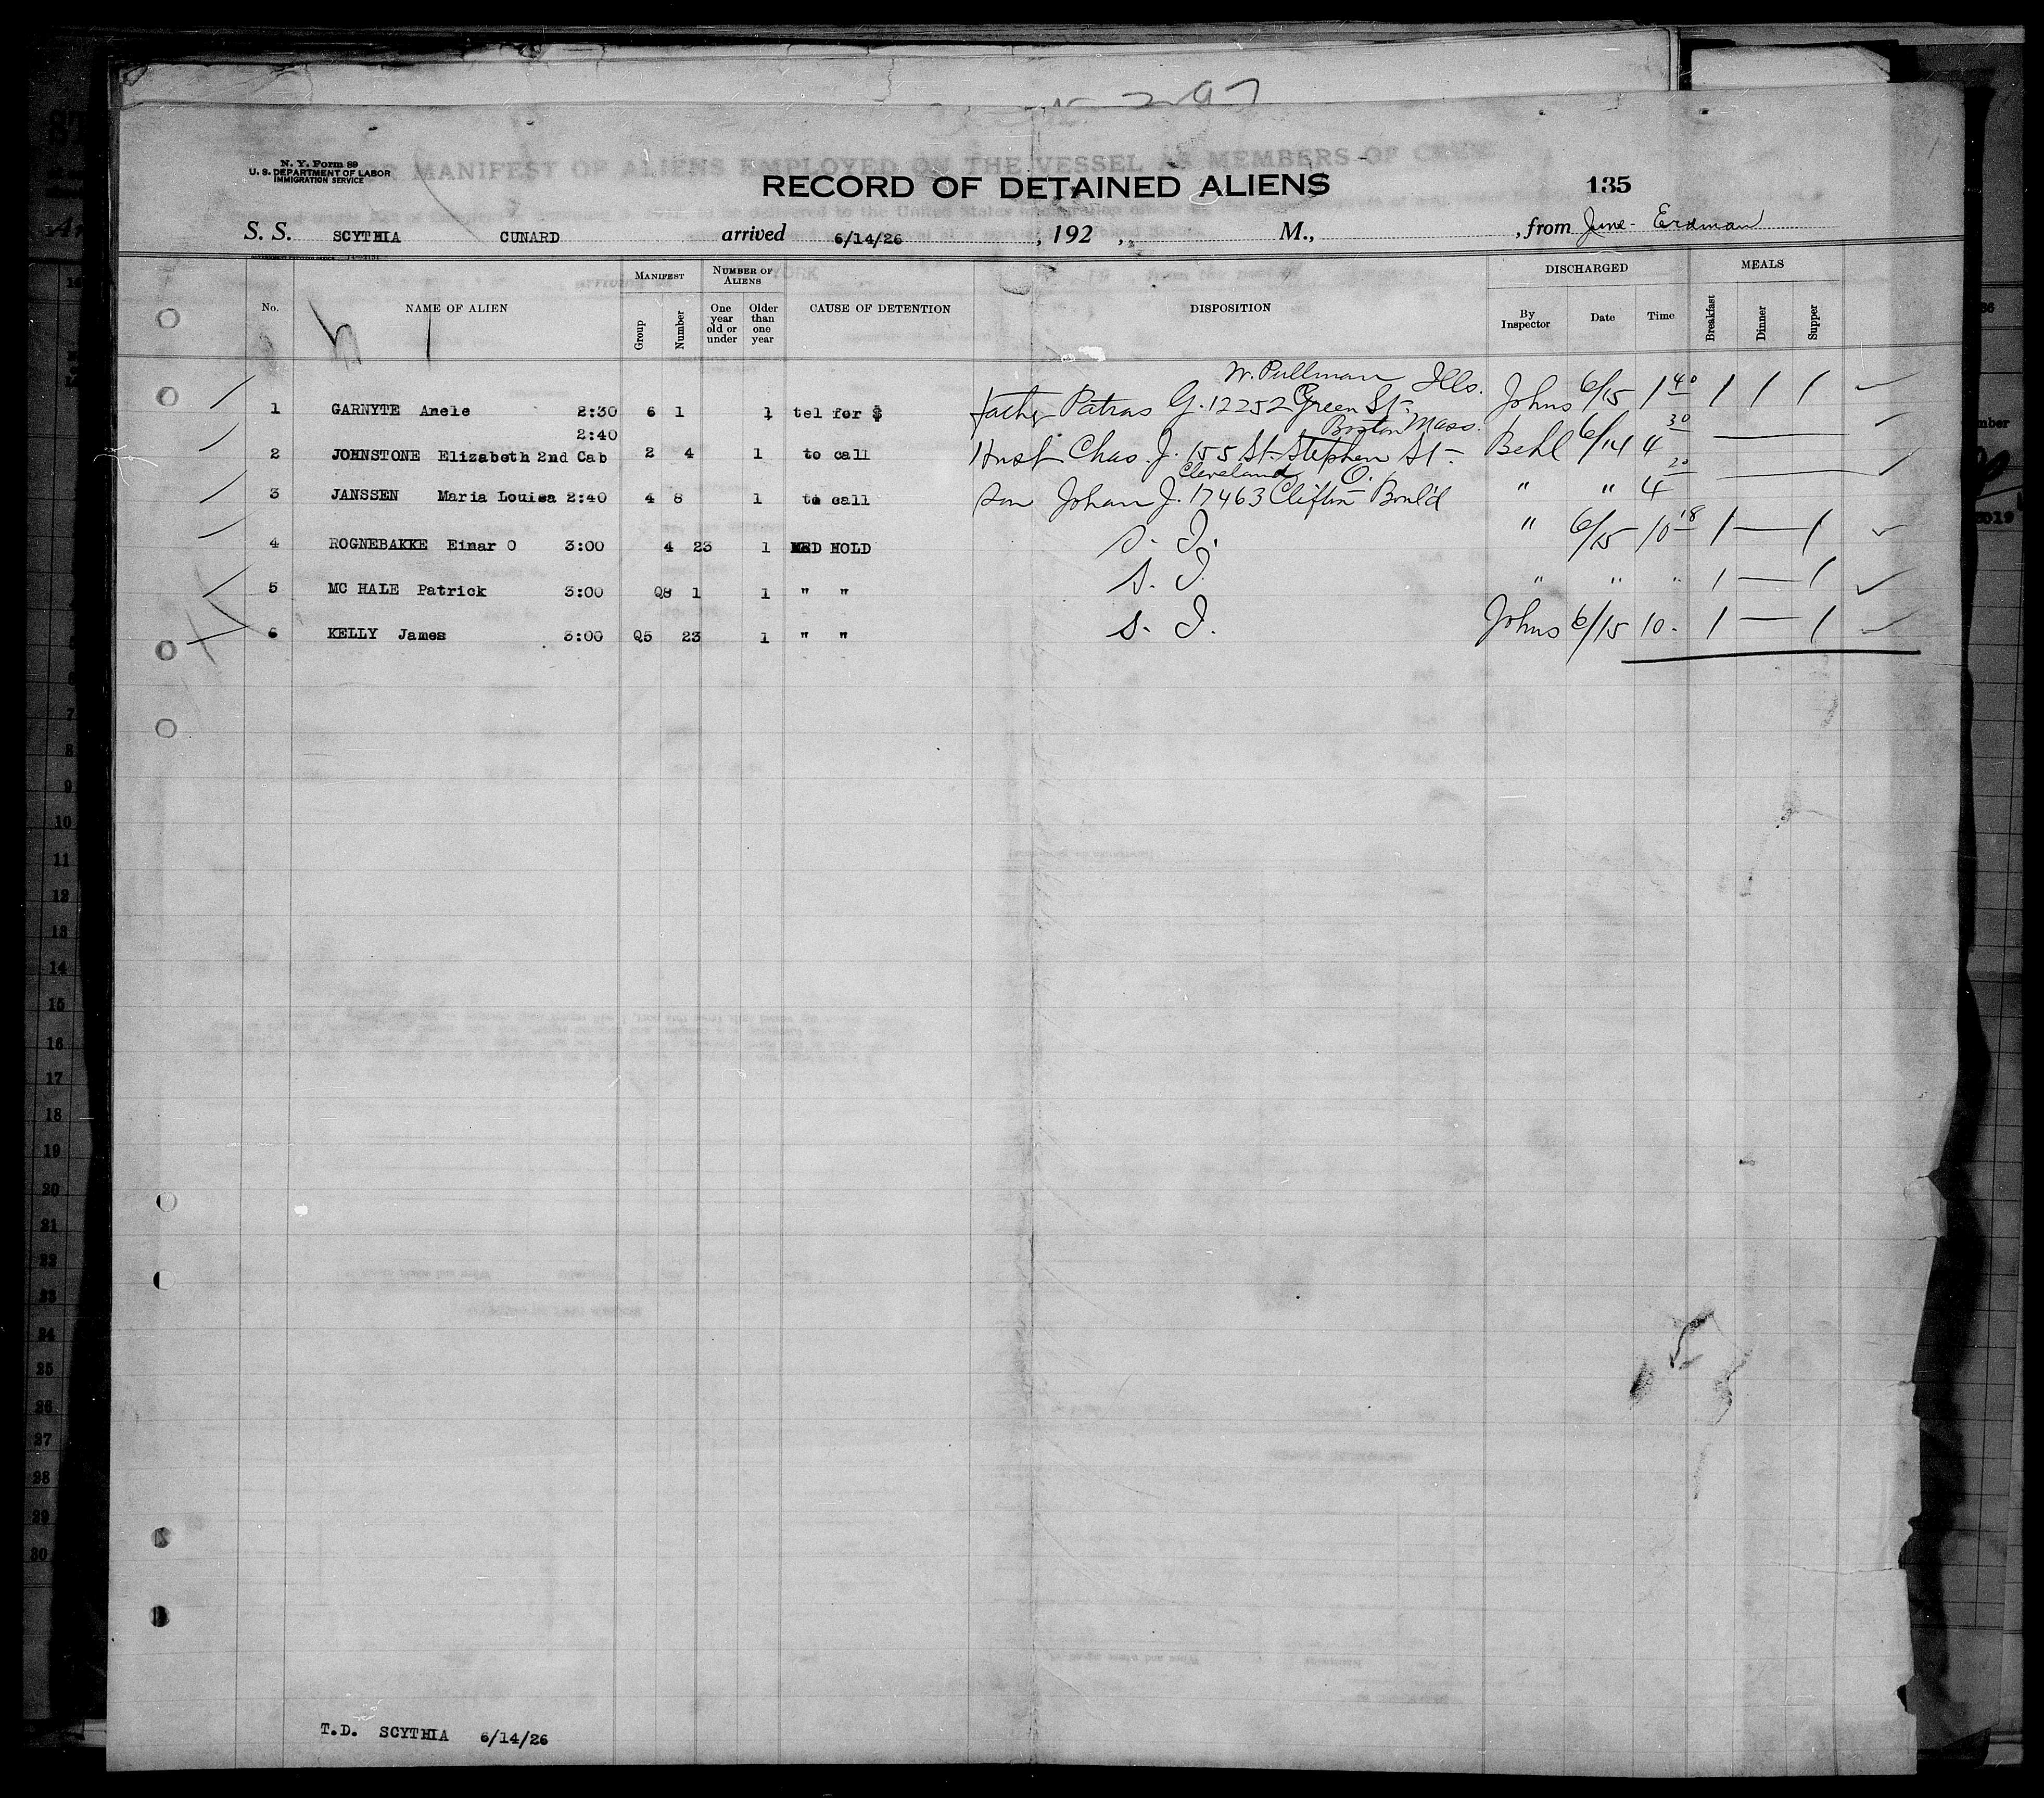 N. Y. Form 89
U. S. DEPARTMENT OF LABOR
IMMIGRATION SERVICE
RECORD OF DETAINED ALIENS 135
S. S. SCYTHIA CUNARD arrived 6/14/26, 192 , M., , from June - Erdman
No. NAME OF ALIEN MANIFEST Group Number NUMBER OF ALIENS One year old or under Older than one year CAUSE OF DETENTION DISPOSITION DISCHARGED By Inspector Date Time MEALS Breakfast Dinner Supper
W. Pullman Ills.
1 GARNYTE Anele 2:30 6 1 1 tel for $ Father Patras G. 12252 Green St- Johns 6/15 1 40 1 1 1
2:40 Boston Mass.
2 JOHNSTONE Elizabeth 2nd Cab 2 4 1 to call Husb Chas. J. 155 St- Stephen St- Behl 6/14 4 30
Cleveland O.
3 JANSSEN Maria Louisa 2:40 4 8 1 to call Son Johan J. 17463 Clifton Boul'd " " 4 20
4 ROGNEBAKKE Einar O 3:00 4 23 1 MED HOLD S. I. " 6/15 10 18 1 — 1
5 MC HALE Patrick 3:00 Q8 1 1 " " S. I. " " " 1 — 1
6 KELLY James 3:00 Q5 23 1 " " S. I. Johns 6/15 10 - 1 — 1
T.D. SCYTHIA 6/14/26